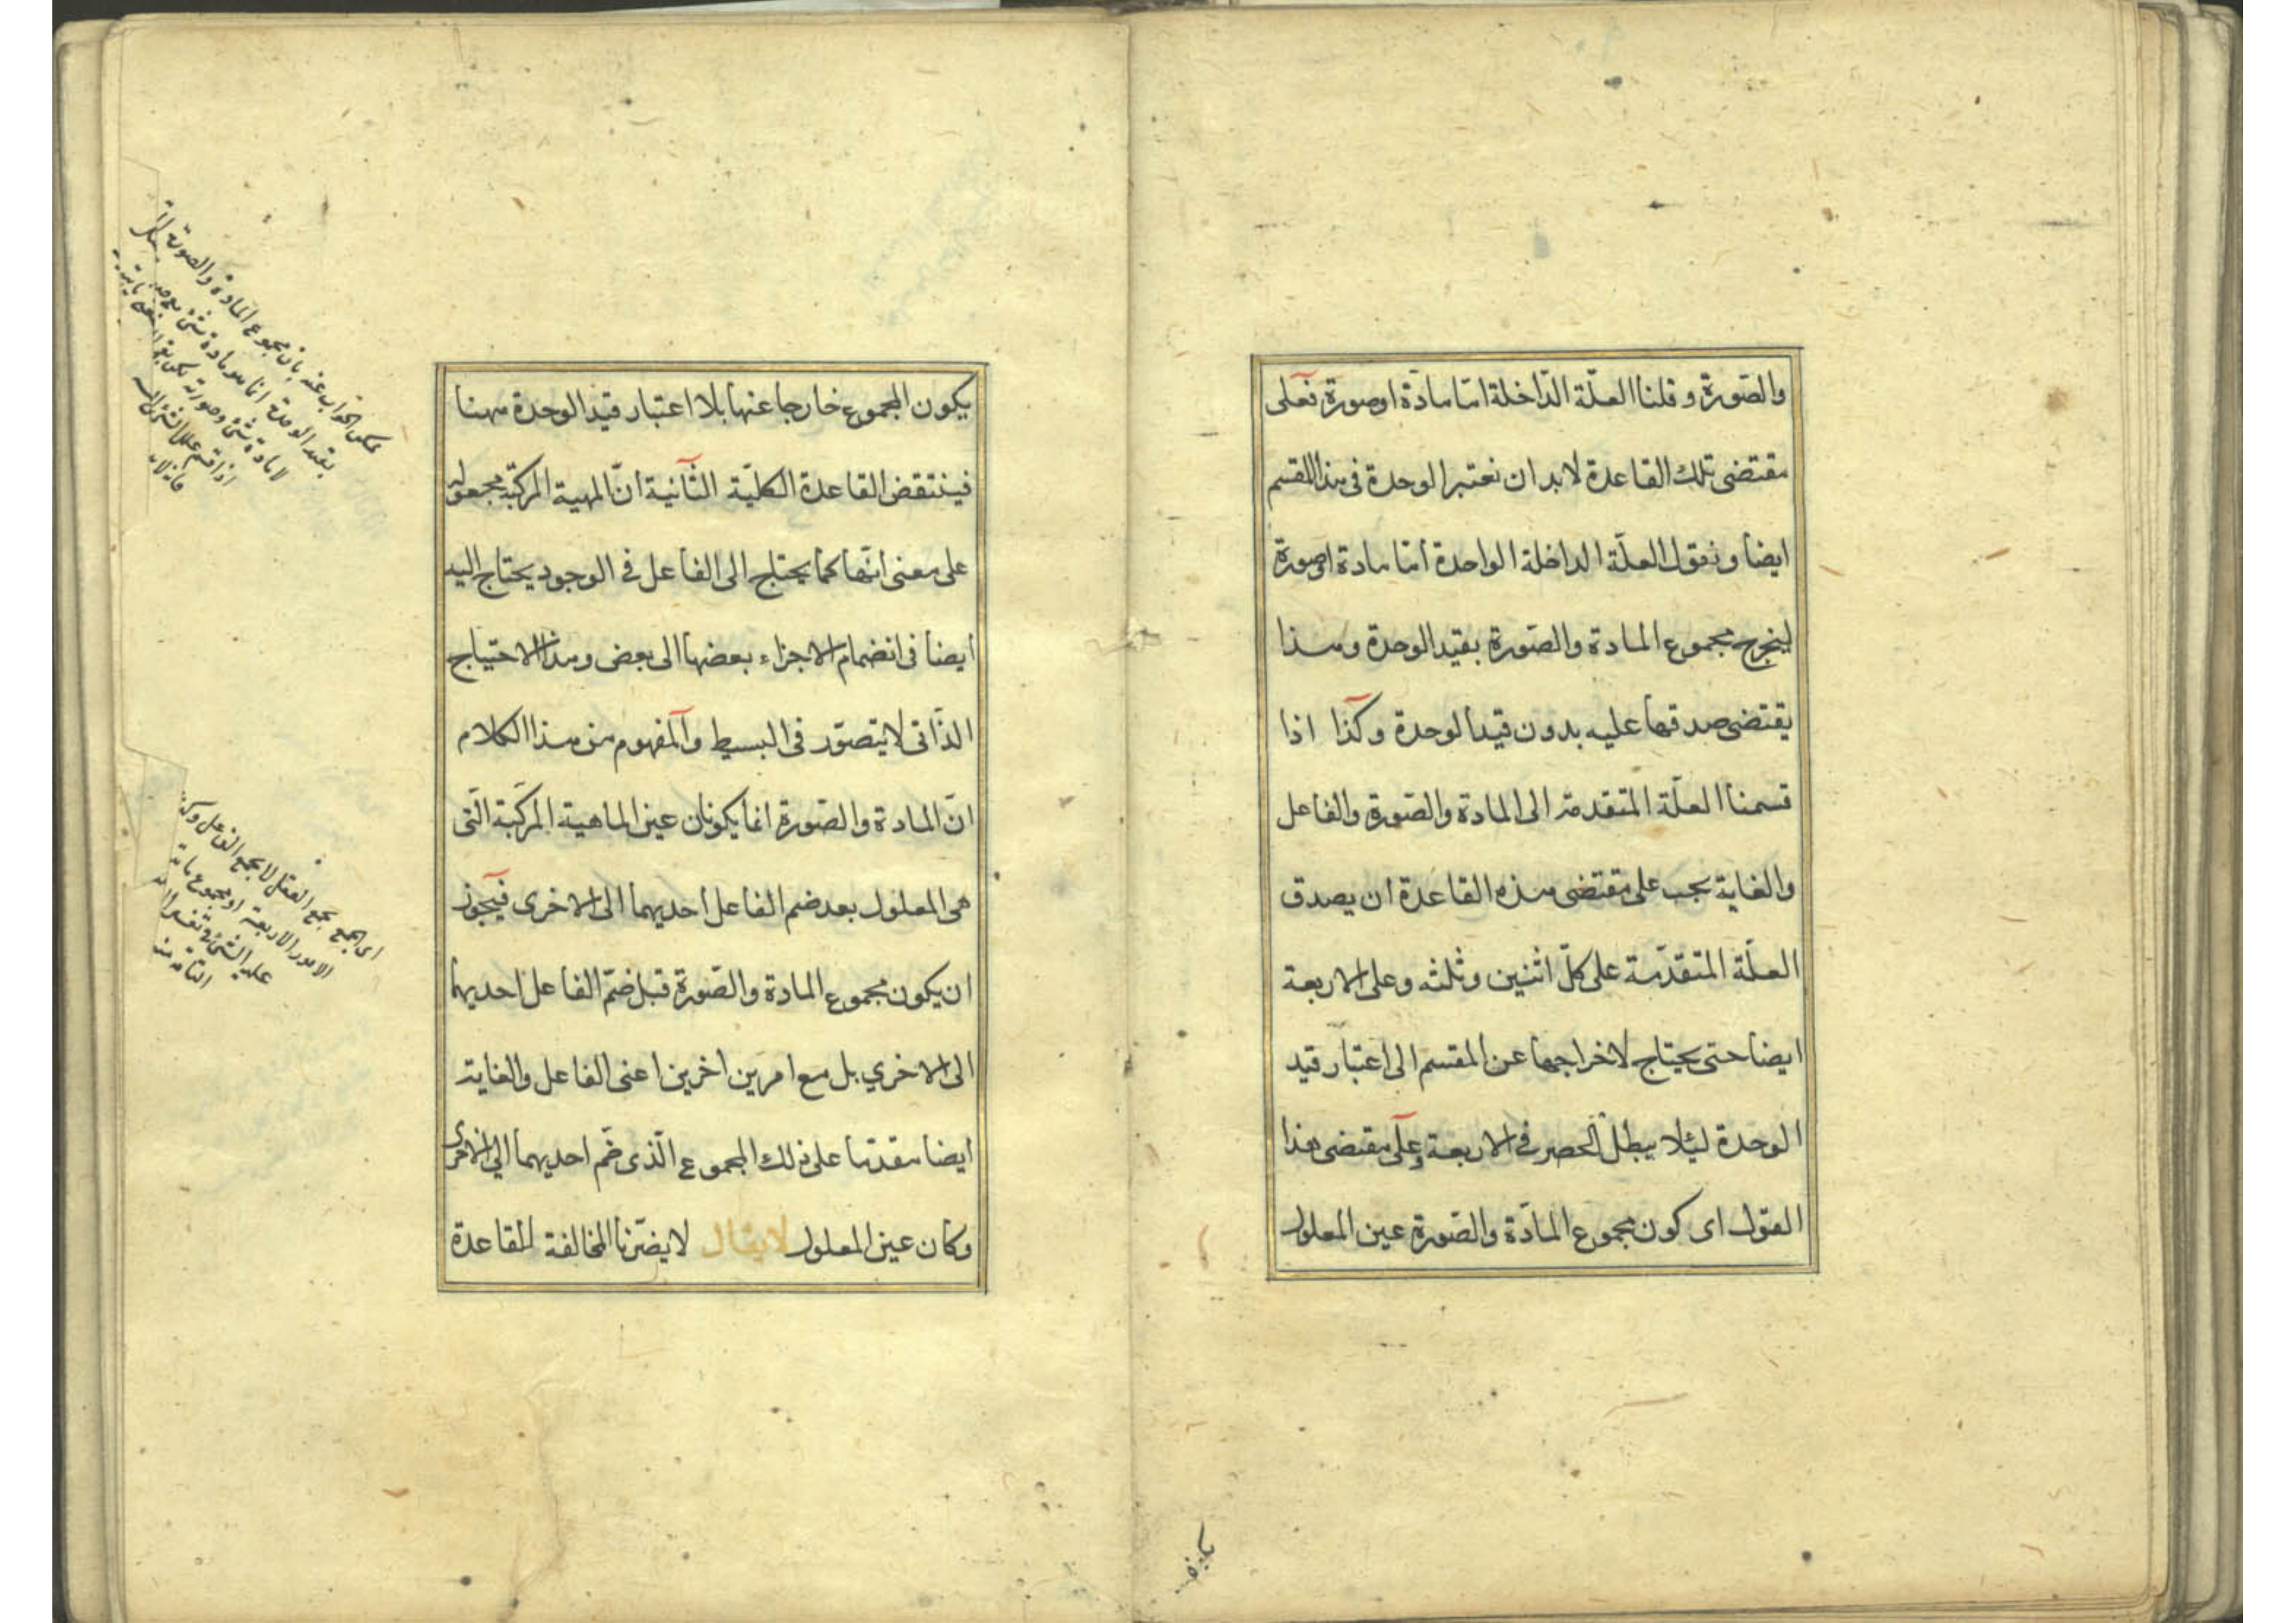 والصّورة وقلنا العلّة الدّاخلة امّا مادّة اوصورة فعلى
مقتضى تلك القاعدة لابد ان نعتبر الوحدة فى هذا المقسم
ايضا ونقول العلّة الداخلة الواحدة امّا مادة اوصورة
ليخرج مجموع المادة والصّورة بقيد الوحدة وهذا
يقتضى صدقها عليه بدون قيد الوحدة وكذا اذا
قسمنا العلّة المتقدمة الى المادة والصّورة والفاعل
والغاية يجب على مقتضى هذه القاعدة ان يصدق
العلّة المتقدّمة على كلّ اثنين وثلثه وعلى الاربعة
ايضا حتى يحتاج لاخراجها عن المقسم الى اعتبار قيد
الوحدة ليئلا يبطل الحصر فى الاربعة وعلى مقتضى هذا
القول اى كون مجموع المادّة والصّورة عين المعلول
يكون المجموع خارجا عنها بلا اعتبار قيد الوحدة ههنا
فينتقض القاعدة الكليّة الثّانية انّ المهية المركبّة مجعولة
على معنى انّها كما يحتاج الى الفاعل فى الوجود يحتاج اليه
ايضا فى انضمام الاجزاء بعضها الى بعض وهذا الاحتياج
الذّاتى لا يتصوّر فى البسيط والمفهوم من هذا الكلام
انّ المادة والصّورة انما يكونان عين الماهية المركّبة الّتى
هى المعلول بعد ضم الفاعل احديهما الى الاخرى فيجوز
ان يكون مجموع المادة والصّورة قبل ضمّ الفاعل احديهما
الى الاخري بل مع امرين اخرين اعنى الفاعل والغاية
ايضا مقدّما على ذلك المجموع الّذى ضّم احديهما الي الاخرى
وكان عين المعلول لايقال لايضرّنا المخالفة للقاعدة
يمكن الجواب عنه بان مجموع المادة والصورة
بقيد الوحدة انما هو مادة شئ
لا مادة شئ وصورته لكن
اى الجمع بجمع العقل لا بجمع الفاعل
الامور الاربعة او مجموع
عليه الشئ فى نفسه
التامة منه